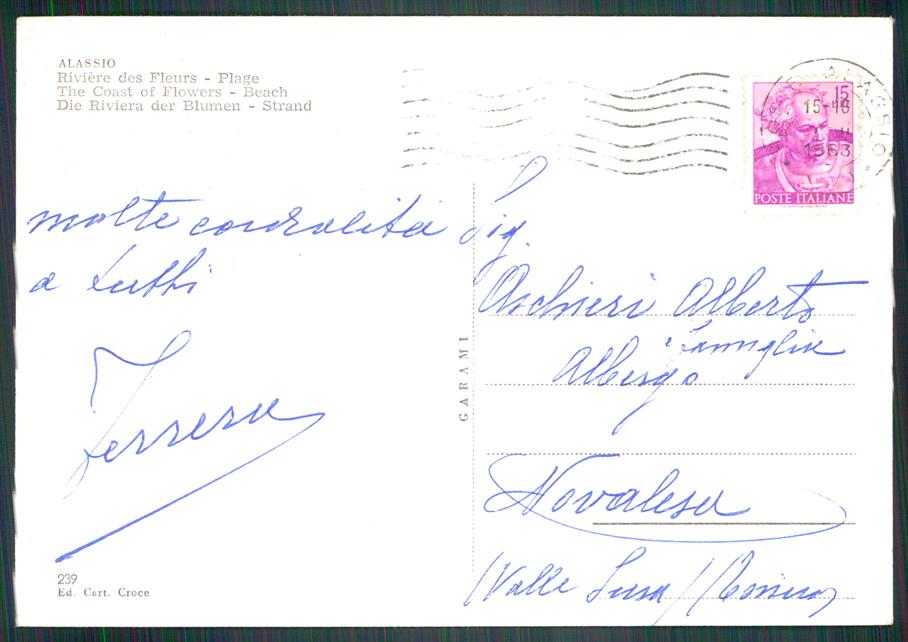 ALASSIO
Rivière des Fleurs - Plage
The Coast of Flowers - Beach
Die Riviera der Blumen - Strand
molte cordialità
a tutti
Ferrero
239
Ed. Cart. Croce
GARAMI
15
ALASSIO
15-16
1963
POSTE ITALIANE
Sig.
Aschieri Alberto
e famiglia
Albergo
Novalesa
(Valle Susa) (Torino)